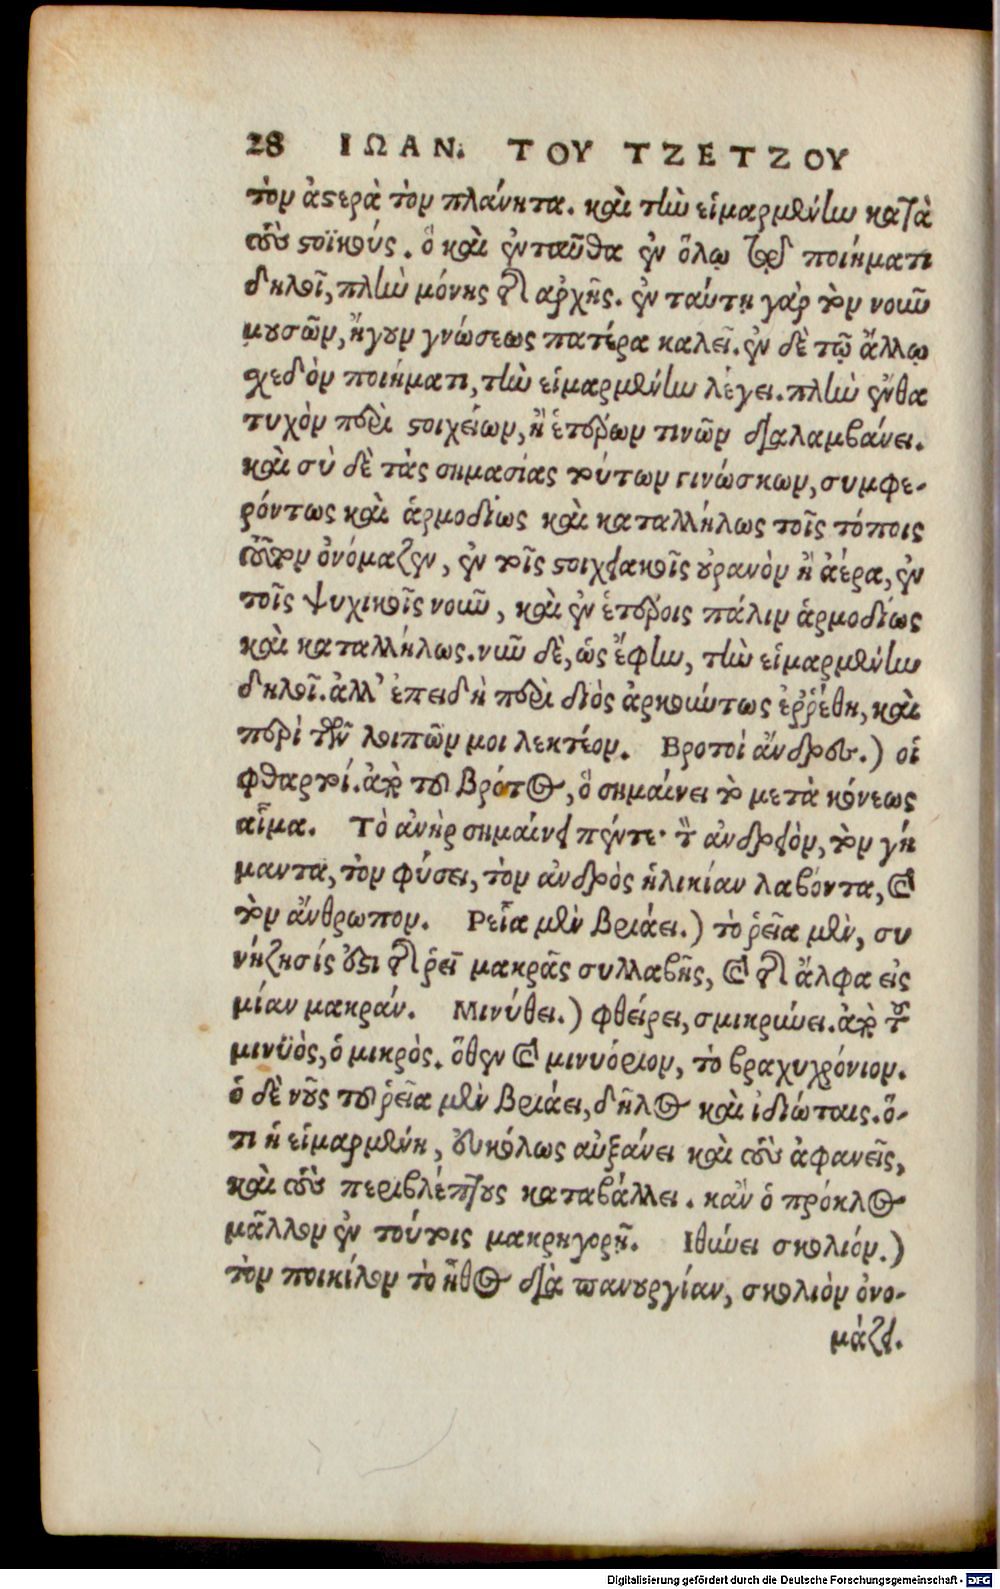 28 ΙΩΑΝ. ΤΟΥ ΤΖΕΤΖΟΥ
τὸν ἀστέρα τὸν πλάνητα. καὶ τὴν εἱμαρμένην κατὰ
τοὺς στοϊκούς. ὃ καὶ ἐνταῦθα ἐν ὅλῳ τῷδε ποιήματι
δηλοῖ, πλὴν μόνης τῆς ἀρχῆς. ἐν ταύτῃ γὰρ τὸν νοῦν
μουσῶν, ἤγουν γνώσεως πατέρα καλεῖ. ἐν δὲ τῷ ἄλλῳ
σχεδὸν ποιήματι, τὴν εἱμαρμένην λέγει. πλὴν ἔνθα
τυχὸν περὶ στοιχείων, ἢ ἑτέρων τινῶν διαλαμβάνει.
καὶ σὺ δὲ τὰς σημασίας τούτων γινώσκων, συμφε-
ρόντως καὶ ἁρμοδίως καὶ καταλλήλως τοῖς τόποις
τοῦτον ὀνόμαζεν, ἐν τοῖς στοιχειακοῖς οὐρανὸν ἢ ἀέρα, ἐν
τοῖς ψυχικοῖς νοῦν, καὶ ἐν ἑτέροις πάλιν ἁρμοδίως
καὶ καταλλήλως. νῦν δὲ, ὡς ἔφην, τὴν εἱμαρμένην
δηλοῖ. ἀλλ' ἐπειδὴ περὶ διὸς ἀρκούντως ἐῤῥέθη, καὶ
περὶ τῶν λοιπῶν μοι λεκτέον. Βροτοὶ ἄνδρες.) οἱ
φθαρτοί. ἀπὸ τοῦ βρότος, ὃ σημαίνει τὸ μετὰ κόνεως
αἷμα. Τὸ ἀνὴρ σημαίνει πέντε· τὸν ἀνδρεῖον, τὸν γή
μαντα, τὸν φύσει, τὸν ἀνδρὸς ἡλικίαν λαβόντα, καὶ
τὸν ἄνθρωπον. Ρεῖα μὲν βριάει.) τὸ ῥεῖα μὲν, συ
νήζησίς ἐστι τῆς ῥεῖ μακρᾶς συλλαβῆς, καὶ τῆς ἄλφα εἰς
μίαν μακράν. Μινύθει.) φθείρει, σμικρύνει. ἀπὸ τοῦ
μινϋὸς, ὁ μικρὸς. ὅθεν καὶ μινυόριον, τὸ βραχυχρόνιον.
ὁ δὲ νοῦς τοῦ ῥεῖα μὲν βριάει, δῆλος καὶ ἰδιώταις. ὅ-
τι ἡ εἱμαρμένη, εὐκόλως αὐξάνει καὶ τοὺς ἀφανεῖς,
καὶ τοὺς περιβλέπτους καταβάλλει. κἂν ὁ πρόκλος
μᾶλλον ἐν τούτοις μακρηγορῇ. Ιθύνει σκολιόν.)
τὸν ποικίλον τὸ ἦθος διὰ πανουργίαν, σκολιὸν ὀνο-
μάζει.
Digitalisierung gefördert durch die Deutsche Forschungsgemeinschaft - DFG